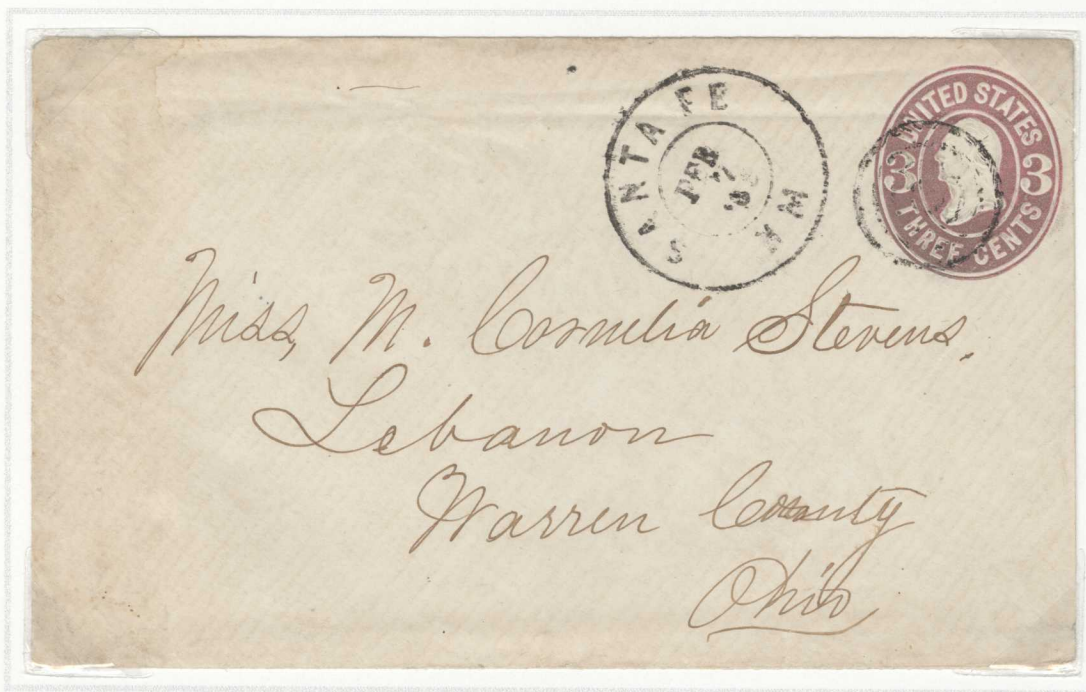 SANTA FE
FEB
7
UNITED STATES
3 3
THREE CENTS
Miss, M. Cornelia Stevens.
Lebanon
Warren County
Ohio